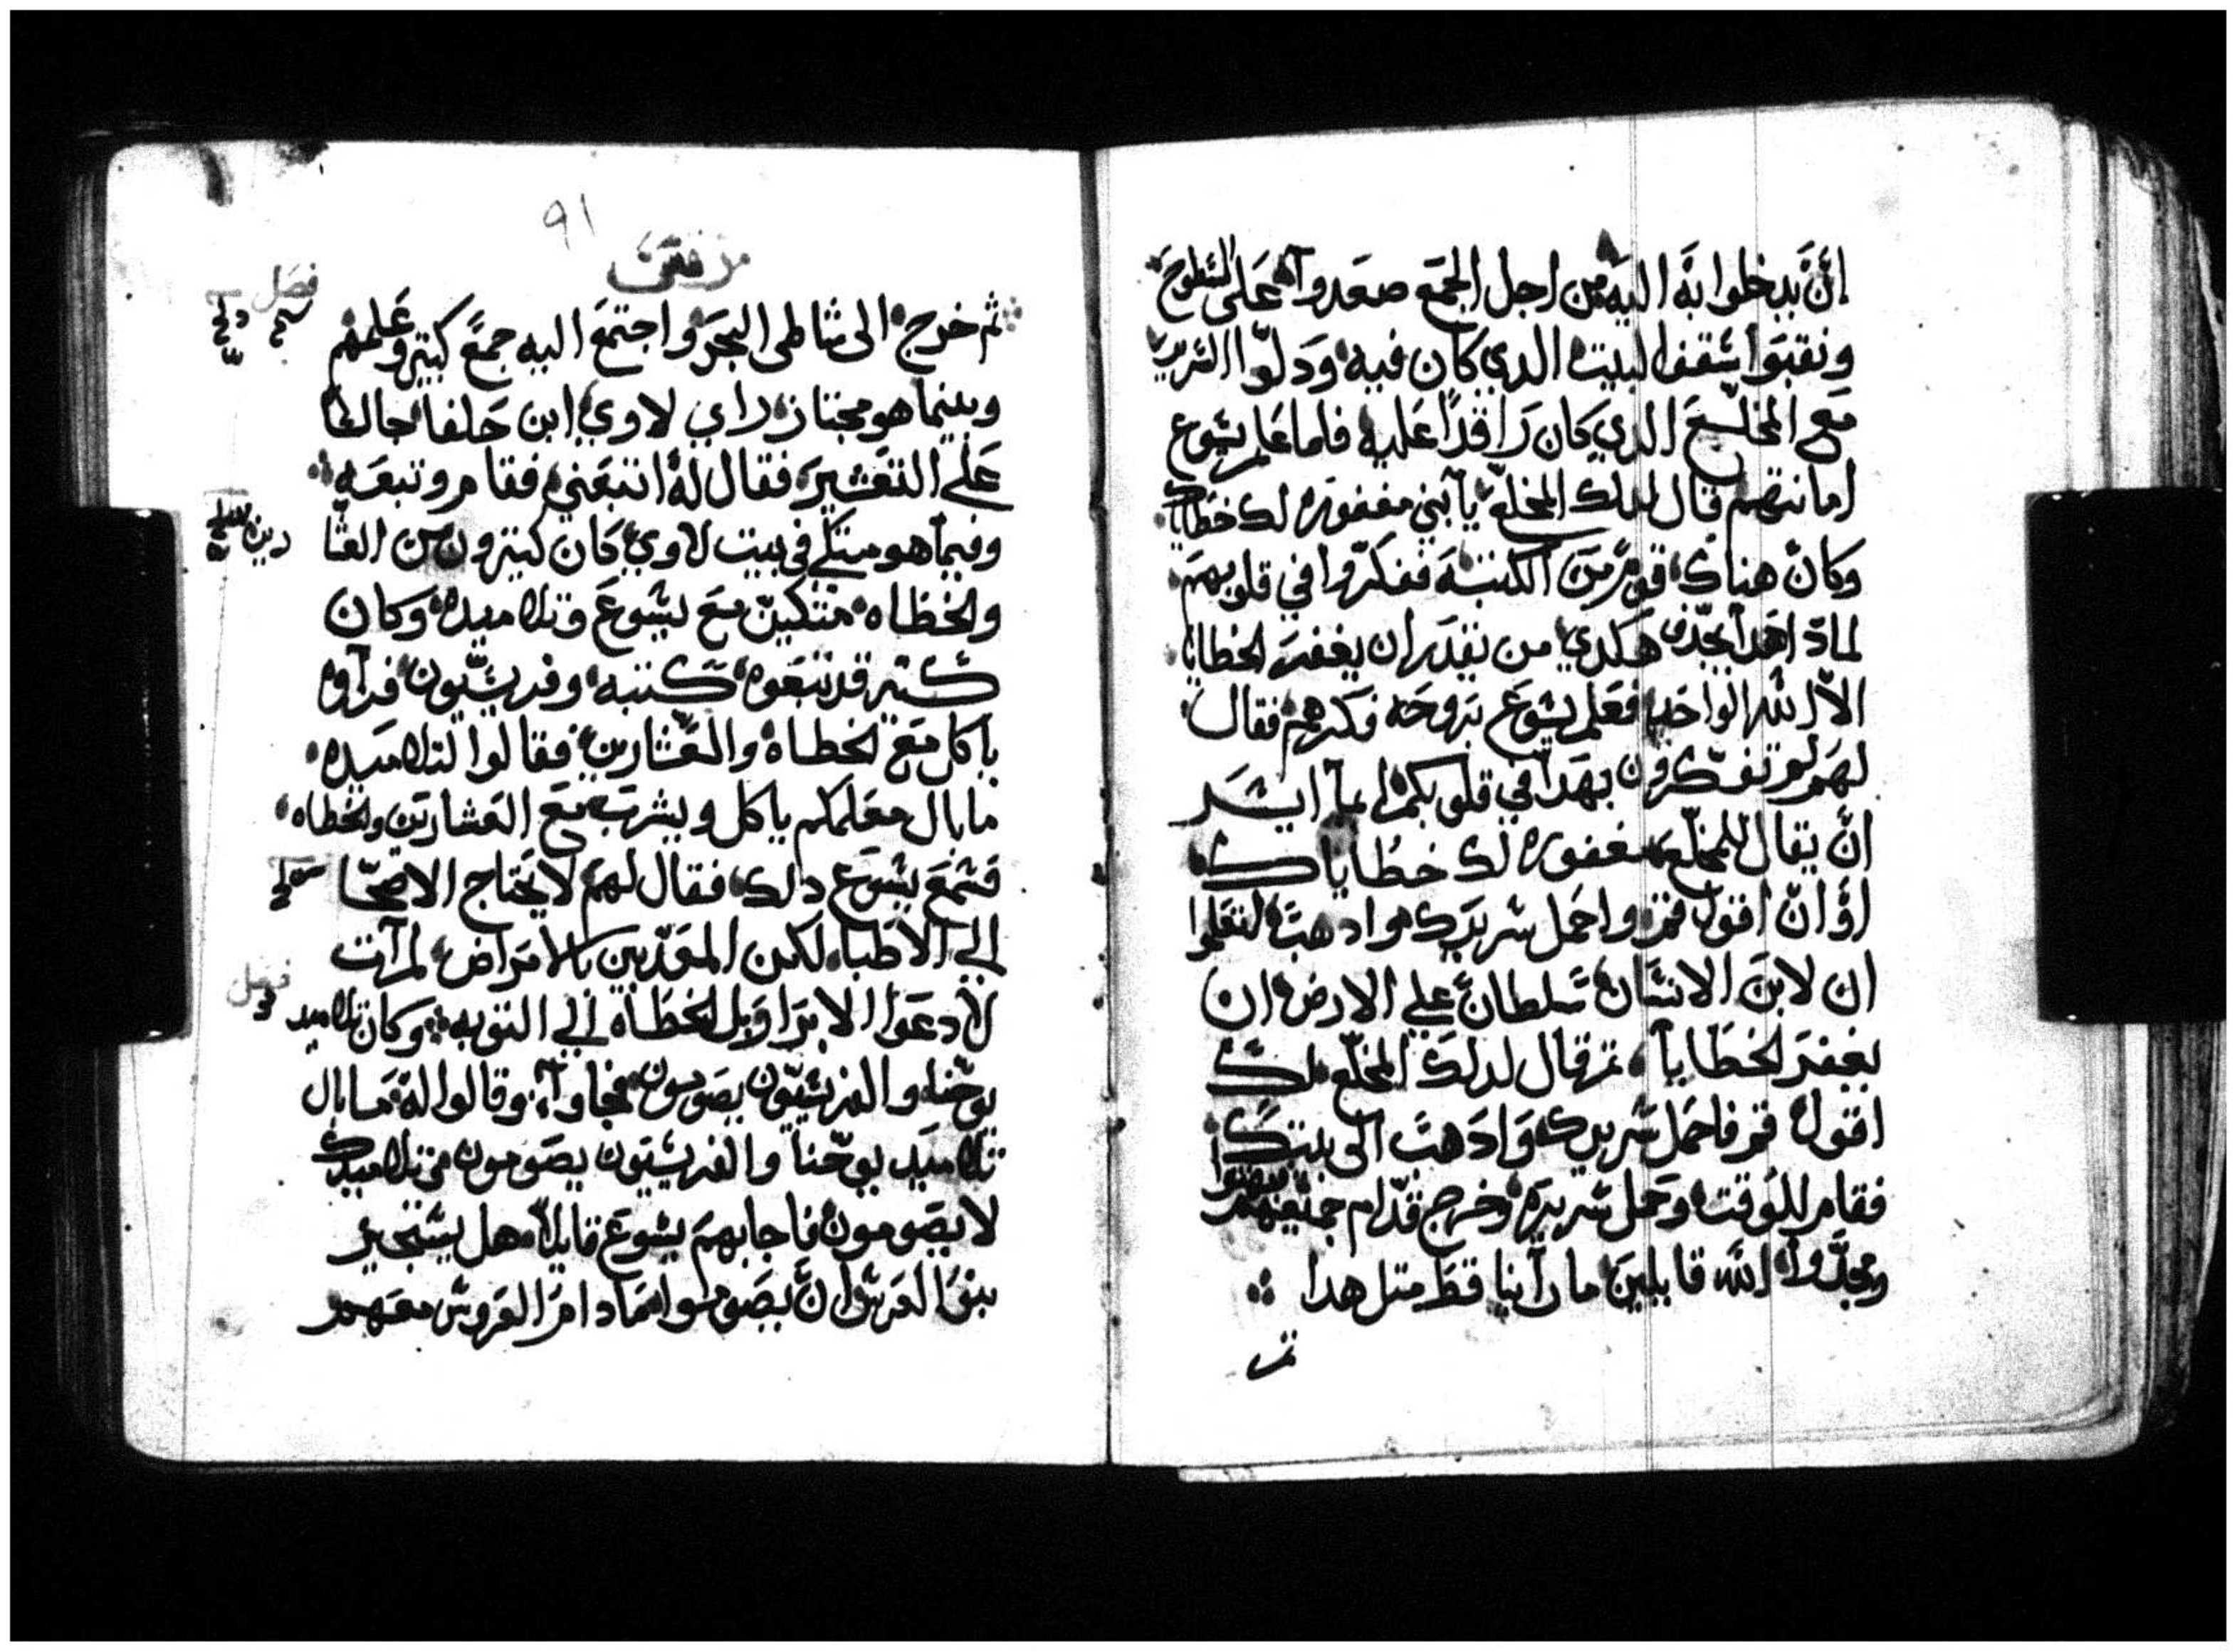 ان يدخلوا به اليه من اجل الجمع صعدوا على السطوح
ونقبوا سقف البيت الدي كان فيه ودلوا السرير
مع المخلع الدي كان راقدا عليه فلما علم يسوع
امانتهم قال لدلك المخلع يا بني مغفوره لك خطاياك
وكان هناك قوم من الكتبه ففكروا في قلوبهم
لمادا هدا يجدف هكدي من يقدر ان يغفر الخطايا
الا الله الواحد فعلم يسوع بروحه فكرهم فقال
لهم لم تفكرون بهدا في قلوبكم ايما ايسر
ان يقال للمخلع مغفوره لك خطاياك
او ان اقول قم واحمل سريرك وادهب لتعلموا
ان لابن الانسان سلطان علي الارض ان
يغفر الخطايا ثم قال لدلك المخلع لك
اقول قم فاحمل سريرك وادهب الى بيتك
فقام للوقت وحمل سريره وخرج قدام جميعهم فبهتوا
ومجدوا الله قايلين ما راينا قط متل هدا
ثم
٩١
مرقس
ثم خرج الى شاطى البحر واجتمع اليه جمع كبير وعلمهم
فصل
وبينما هو مجتاز راي لاوي ابن حلفا جالسا
على التعشير فقال له اتبعني فقام وتبعه
وفيما هو متكي في بيت لاوي كان كثيرون من العشا
رين
والخطاه متكين مع يسوع وتلاميده وكان
كثير قد تبعوه كتبه وفريسيون فراوه
ياكل مع الخطاه والعشارين فقالوا لتلاميده
ما بال معلمكم ياكل ويشرب مع العشارين والخطاه
فسمع يسوع دلك فقال لهم لا يحتاج الاصحا
الي الاطباء لكن المعدبين بالامراض لم آت
فصل
لادعوا الابرار بل الخطاه الي التوبه وكان تلاميد
يوحنا والفريسيون يصومون فجاوا وقالوا له ما بال
تلاميد يوحنا والفريسيون يصومون وتلاميدك
لا يصومون فاجابهم يسوع قايلا هل يستجير
بنو العرس ان يصوموا ما دام العروس معهم